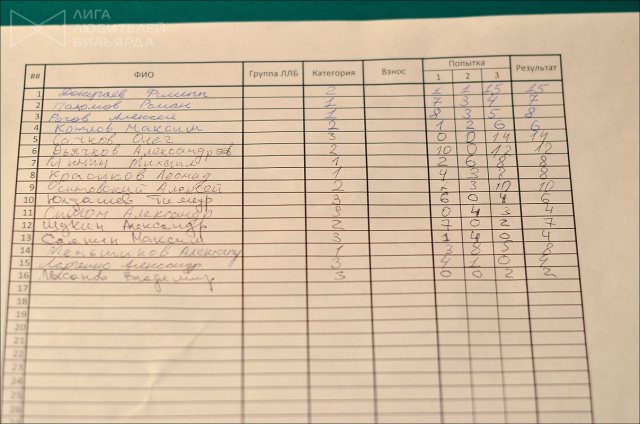 ЛИГА
ЛЮБИТЕЛЕЙ
БИЛЬЯРДА
## ФИО Группа ЛЛБ Категория Взнос Попытка Результат
1 2 3
1 Филипп 2 1 1 15 15
2 Пахомов Роман 1 7 3 4 7
3 Рогов Алексей 1 8 3 5 8
4 Козлов Максим 2 1 2 6 6
5 Сачков Олег 3 0 0 14 14
6 Дьячков Александр 2 10 0 12 12
7 Минин Михаил 1 2 6 8 8
8 Красиков Леонид 1 4 3 8
9 Осиповский Алексей 2 3 10 10
10 Юлдашев Тимур 3 6 0 4 6
11 Александр 3 0 4 3 4
12 Щукин Александр 2 7 0 2 7
13 Максим 3 1 4 0 4
14 Меньшиков Александр 1 3 8 5 8
15 Александр 3 4 1 0 4
16 Владимир 3 0 0 2 2
17
18
19
20
21
22
23
24
25
26